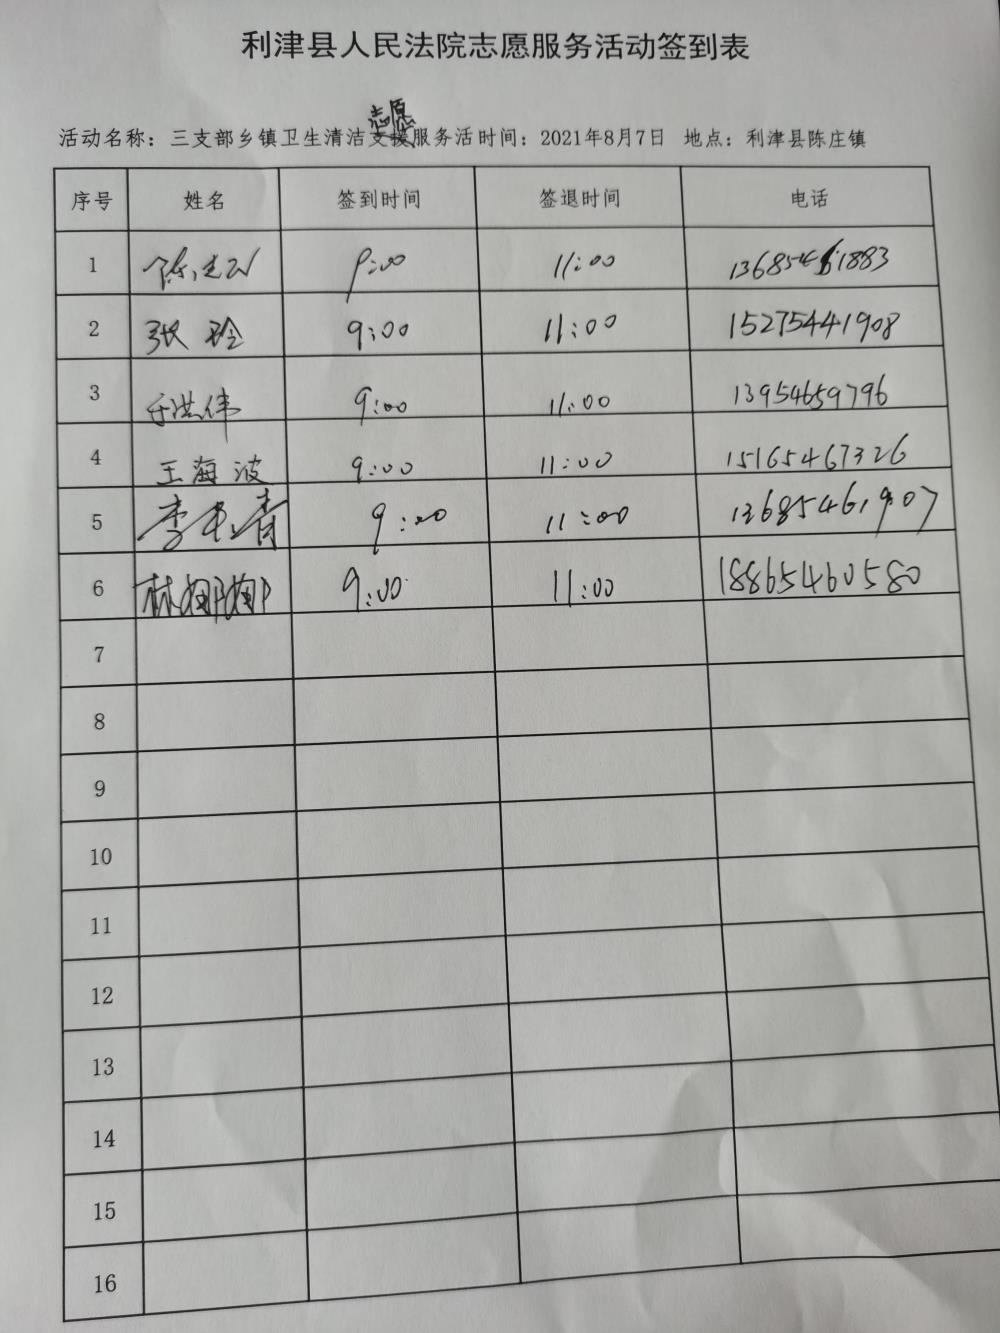 利津县人民法院志愿服务活动签到表
志愿
活动名称：三支部乡镇卫生清洁支援服务活时间：2021年8月7日 地点：利津县陈庄镇
序号 姓名 签到时间 签退时间 电话
1 9:00 11:00 13685461883
2 张玲 9:00 11:00 15275441908
3 于洪伟 9:00 11:00 13954659796
4 王海波 9:00 11:00 15165467326
5 9:00 11:00 13685461907
6 林娜娜 9:00 11:00 18865460580
7
8
9
10
11
12
13
14
15
16